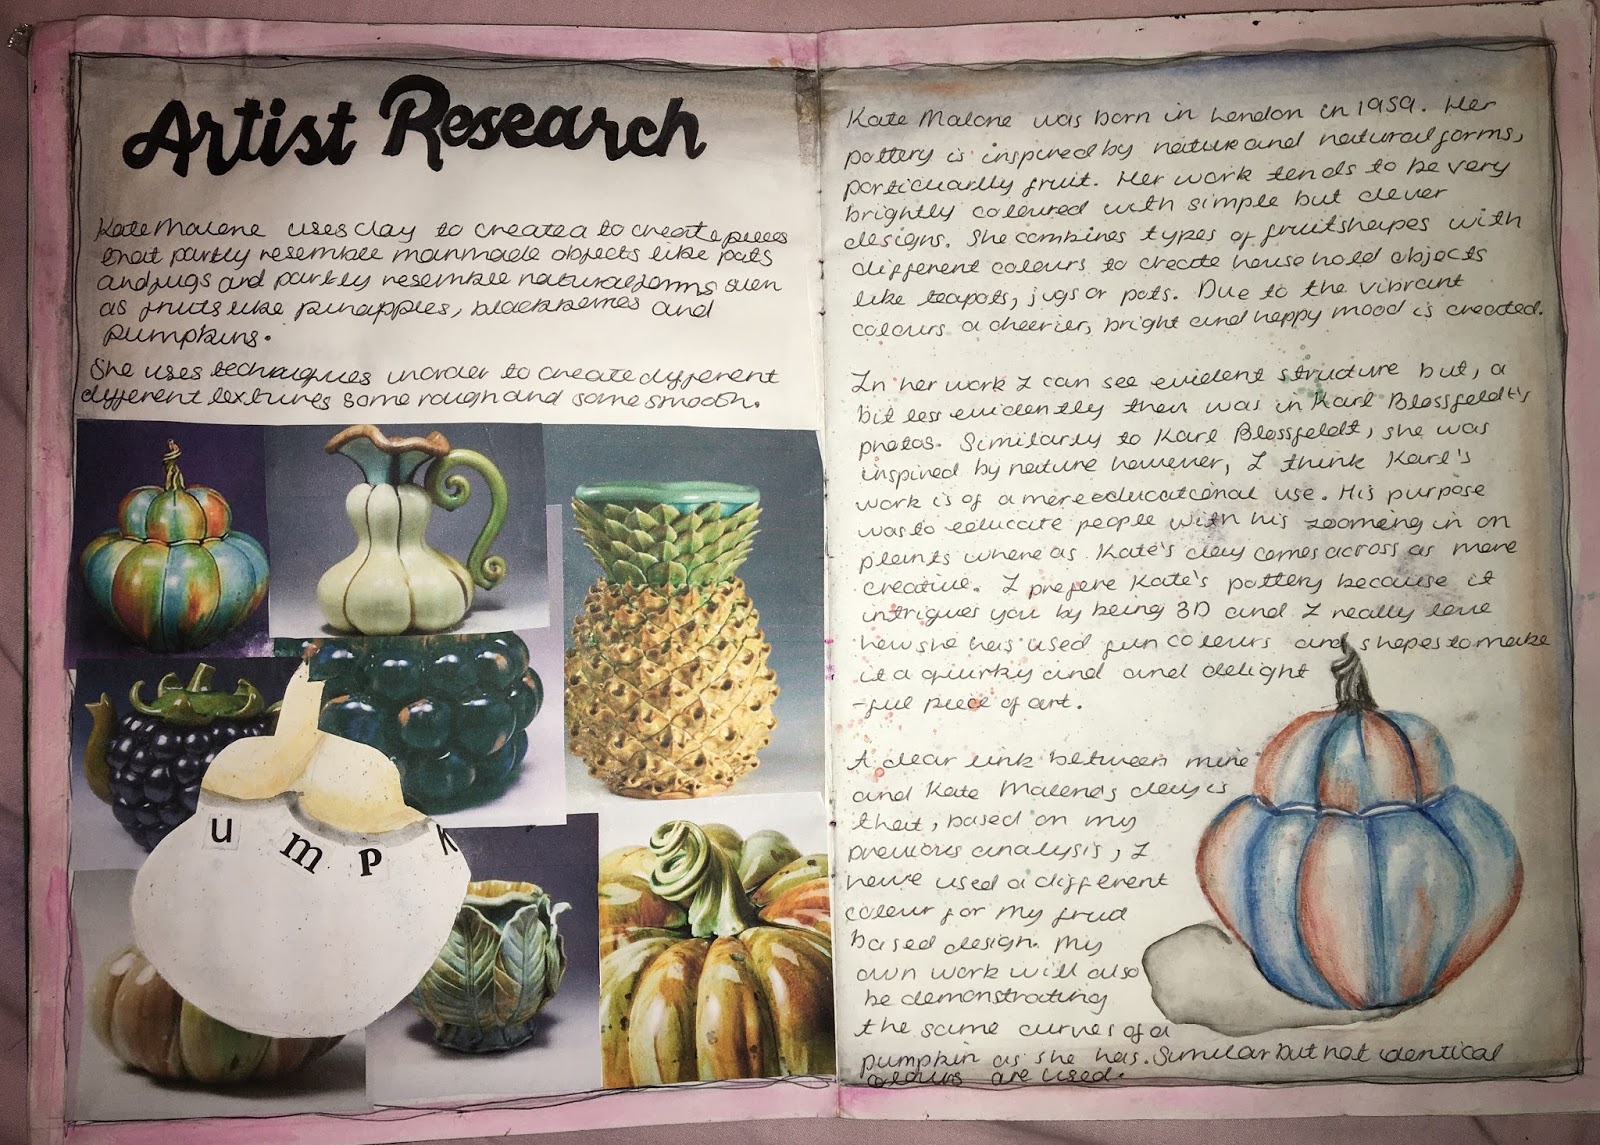 Artist Research
Kate Malone uses clay to create a to create pieces
that partly resemble manmade objects like pots
and jugs and partly resemble natural forms such
as fruits like pinapples, blackberries and
pumpkins.
She uses techniques in order to create different
different textures some rough and some smooth.
u m p k
Kate Malone was born in London in 1959. Her
pottery is inspired by nature and natural forms,
particuarlly fruit. Her work tends to be very
brightly coloured with simple but clever
designs. She combines types of fruit shapes with
different colours to create household objects
like teapots, jugs or pots. Due to the vibrant
colours a cheerier, bright and happy mood is created.
In her work I can see evident structure but, a
bit less evidently then was in Karl Blossfeldt's
photos. Similarly to Karl Blossfeldt, she was
inspired by nature however, I think Karl's
work is of a more educational use. His purpose
was to educate people with his zooming in on
plants where as Kate's clay comes across as more
creative. I prefere Kate's pottery because it
intrigues you by being 3D and I really love
how she has used fun colours and shapes to make
it a quirky and and delight
-ful piece of art.
A clear link between mine
and Kate Malone's clay is
that, based on my
previous analysis, I
have used a different
colour for my fruit
based design. My
own work will also
be demonstrating
the same curves of a
pumpkin as she has. Similar but not identical
colours are used.